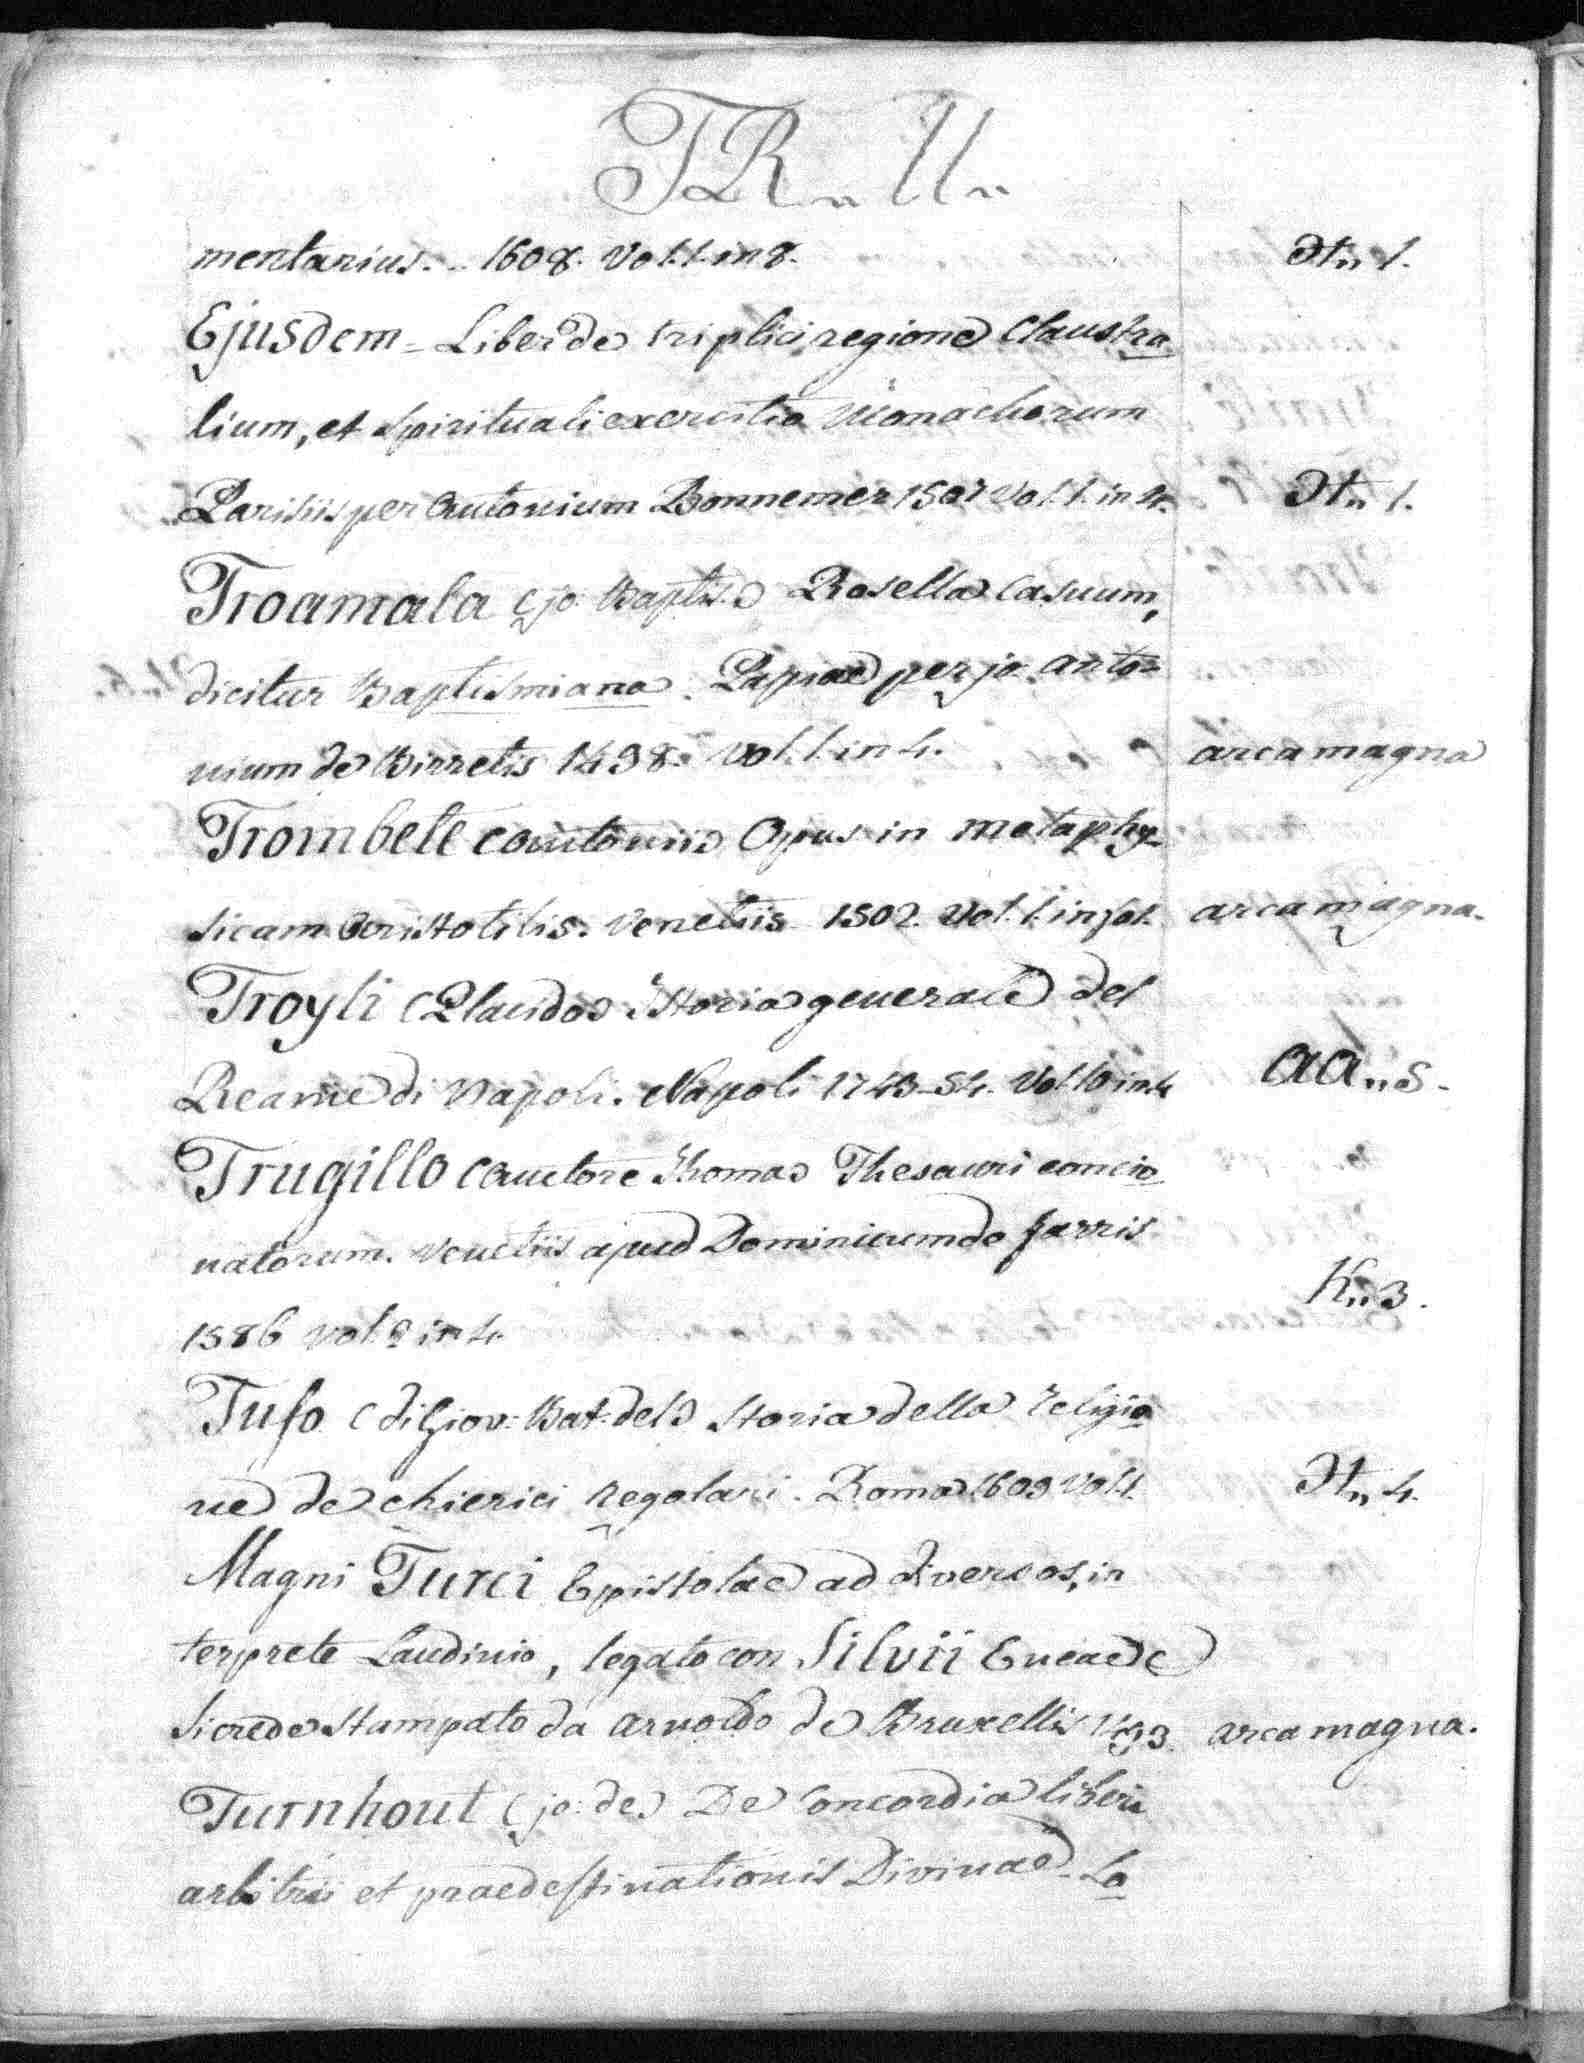 TR „ U „
mentarius... 1608. Vol. 1. in 8. H„ 1.
Ejusdem = Liber de triplici regione Claustra
lium, et spirituali exercitio Monachorum
Parisiis per Antonium Bonnemer 1507 Vol. 1. in 4. H„ 1.
Troamala (jo: Baptis.) Rosella Casuum,
dicitur Baptismiana. Papiae per jo. Anto=
nium de Birretis 1498. Vol. 1. in 4. arca magna
Trombete (Antonii) Opus in metaphy=
sicam Aristotilis. Venetiis 1502. Vol. 1. in fol. arca magna.
Troyli (Placido) Istoria generale del
Reame di Napoli. Napoli 1743-54. Vol. 10 in 4 AA„ 5.
Trugillo (Auctore Thoma) Thesauri concio
natorum. Venetiis apud Dominicum de farris
1586 vol. 2 in 4. K„ 3.
Tufo (di Giov: Bat: del) Storia della religio
ne de chierici regolari. Roma 1609 Vol 1. H„ 4.
Magni Turci Epistolae ad diversos, in
terprete Laudinio, legato con Silvii Eneae e
si crede stampato da Arnoldo de Bruxellis 1493. arca magna.
Turnhout (jo: de) De Concordia liberi
arbitrii et praedestinationis Divinae. Lo